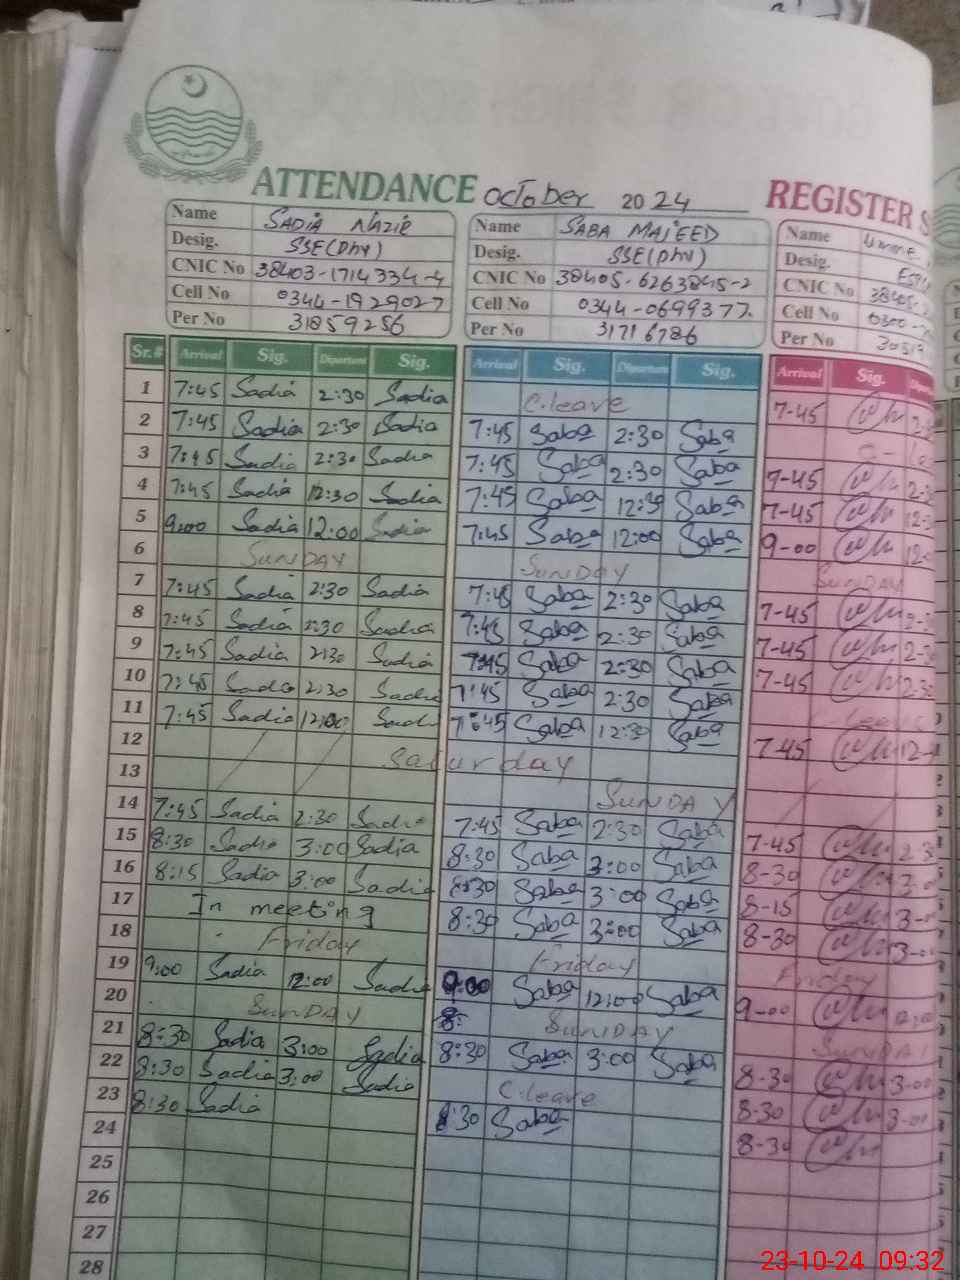 ATTENDANCE October 2024 REGISTER
Name SADIA NAZIR Name SABA MAJEED Name
Desig. SSE(Phy) Desig. SSE(Phy) Desig.
CNIC No 38403-1714334-4 CNIC No 38405-6263845-2 CNIC No
Cell No 0344-1929027 Cell No 0344-0699377 Cell No
Per No 31859256 Per No 31716786 Per No
Sr.# Arrival Sig. Diparture Sig. Arrival Sig. Diparture Sig. Arrival Sig.
1 7:45 Sadia 2:30 Sadia C.leave 7-45
2 7:45 Sadia 2:30 Sadia 7:45 Saba 2:30 Saba
3 7:45 Sadia 2:30 Sadia 7:45 Saba 2:30 Saba 7-45
4 7:45 Sadia 12:30 Sadia 7:45 Saba 12:30 Saba 7-45
5 9:00 Sadia 12:00 Sadia 7:45 Saba 12:00 Saba 9-00
6 SUNDAY SUNDAY SUNDAY
7 7:45 Sadia 2:30 Sadia 7:45 Saba 2:30 Saba 7-45
8 7:45 Sadia 2:30 Sadia 7:45 Saba 2:30 Saba 7-45
9 7:45 Sadia 2:30 Sadia 7:45 Saba 2:30 Saba 7-45
10 7:45 Sadia 2:30 Sadia 7:45 Saba 2:30 Saba
11 7:45 Sadia 12:00 Sadia 7:45 Saba 12:30 Saba 7-45
12 Saturday
13 SUNDAY
14 7:45 Sadia 2:30 Sadia 7:45 Saba 2:30 Saba 7-45
15 8:30 Sadia 3:00 Sadia 8:30 Saba 3:00 Saba 8-30
16 8:15 Sadia 3:00 Sadia 8:30 Saba 3:00 Saba 8-15
17 In meeting 8:30 Saba 3:00 Saba 8-30
18 Friday Friday Friday
19 9:00 Sadia 12:00 Sadia 9:00 Saba 12:00 Saba 9-00
20 SUNDAY 8: SUNDAY SUNDAY
21 8:30 Sadia 3:00 Sadia 8:30 Saba 3:00 Saba 8-30
22 8:30 Sadia 3:00 Sadia C.leave 8-30
23 8:30 Sadia 8:30 Saba 8-30
24
25
26
27
28
23-10-24 09:32